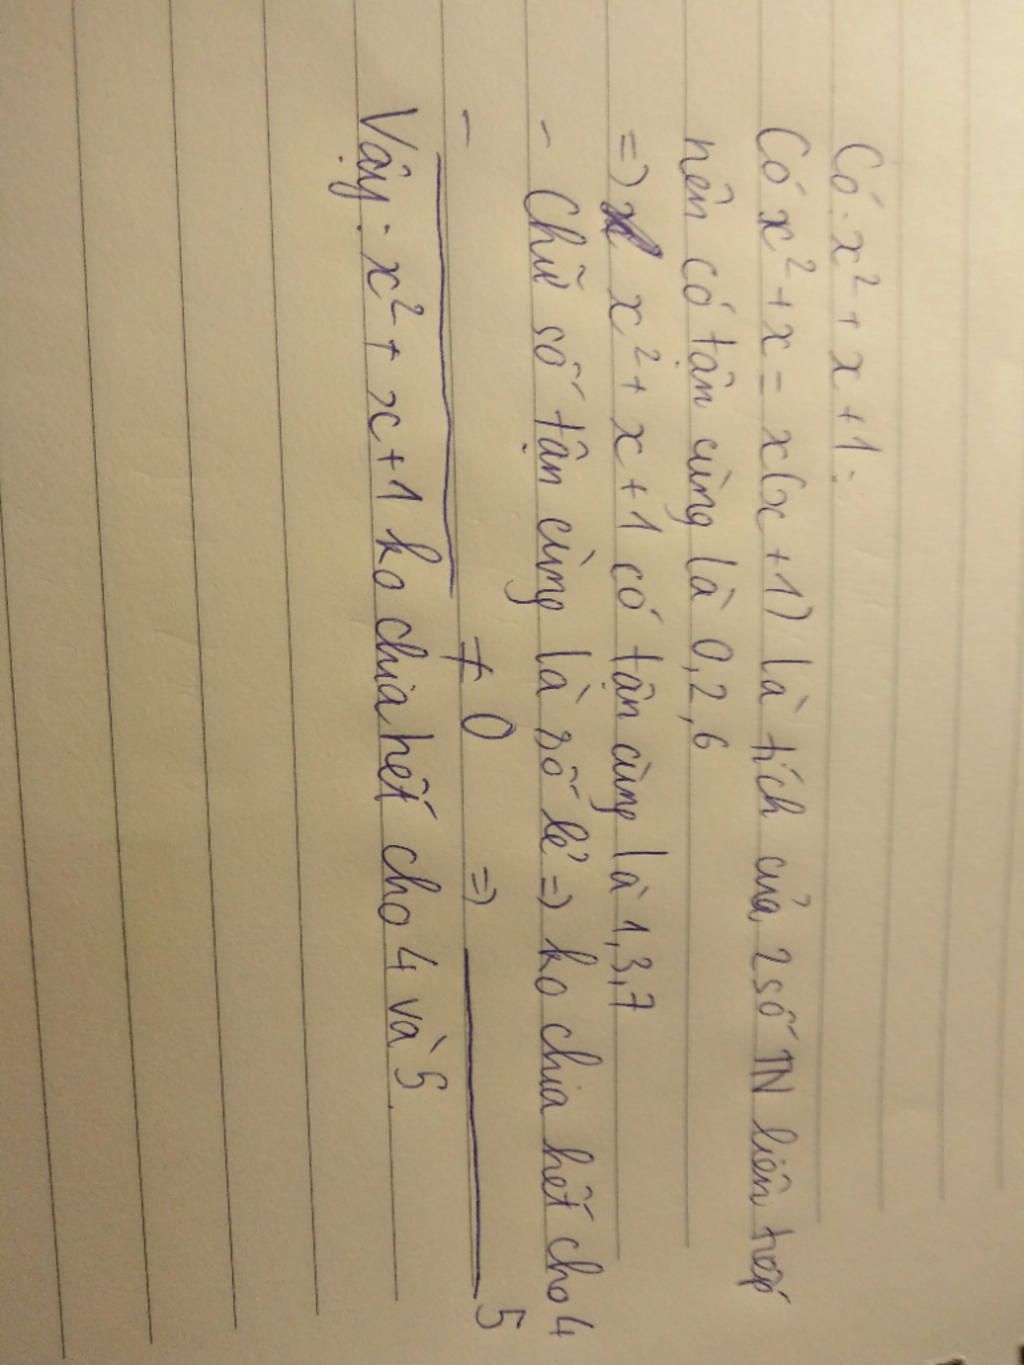 Có: x² + x + 1 :
Có x² + x = x(x + 1) là tích của 2 số TN liên tiếp
nên có tận cùng là 0, 2, 6
=> x² + x + 1 có tận cùng là 1, 3, 7
- Chữ số tận cùng là số lẻ => ko chia hết cho 4
- ≠ 0 => 5
Vậy: x² + x + 1 ko chia hết cho 4 và 5.